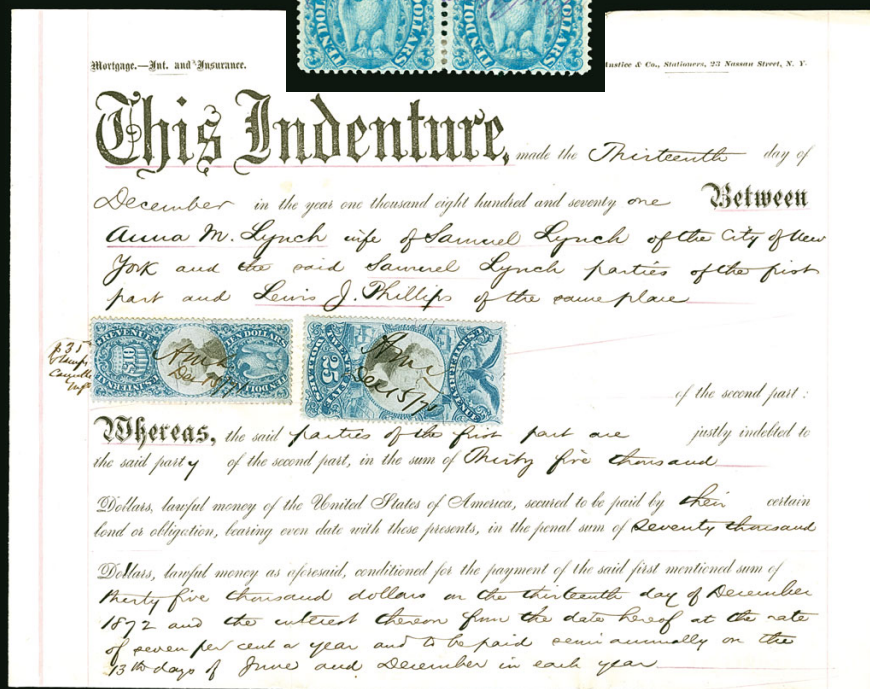 TEN DOLLARS TEN DOLLARS
Mortgage.—Int. and Insurance.
ustice & Co., Stationers, 23 Nassau Street, N. Y.
This Indenture, made the Thirteenth day of
December in the year one thousand eight hundred and seventy one Between
Anna M. Lynch wife of Samuel Lynch of the City of New
York and the said Samuel Lynch parties of the first
part and Lewis J. Phillips of the same place
$35
Stamps
U.S. INTER. REVENUE TEN DOLLARS
$10
25
AML
Dec 13/71
AML
Dec 13/71
of the second part:
Whereas, the said parties of the first part are justly indebted to
the said party of the second part, in the sum of Thirty five thousand
Dollars, lawful money of the United States of America, secured to be paid by their certain
bond or obligation, bearing even date with these presents, in the penal sum of Seventy thousand
Dollars, lawful money as aforesaid, conditioned for the payment of the said first mentioned sum of
thirty five thousand dollars on the thirteenth day of December
1872 and the interest thereon from the date hereof at the rate
of seven per cent a year and to be paid semi annually on the
13th days of June and December in each year